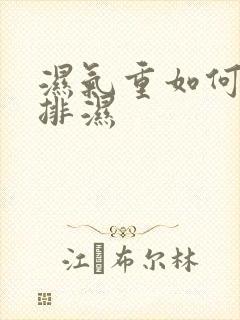 濕氣重如何
排濕
江 布尔林